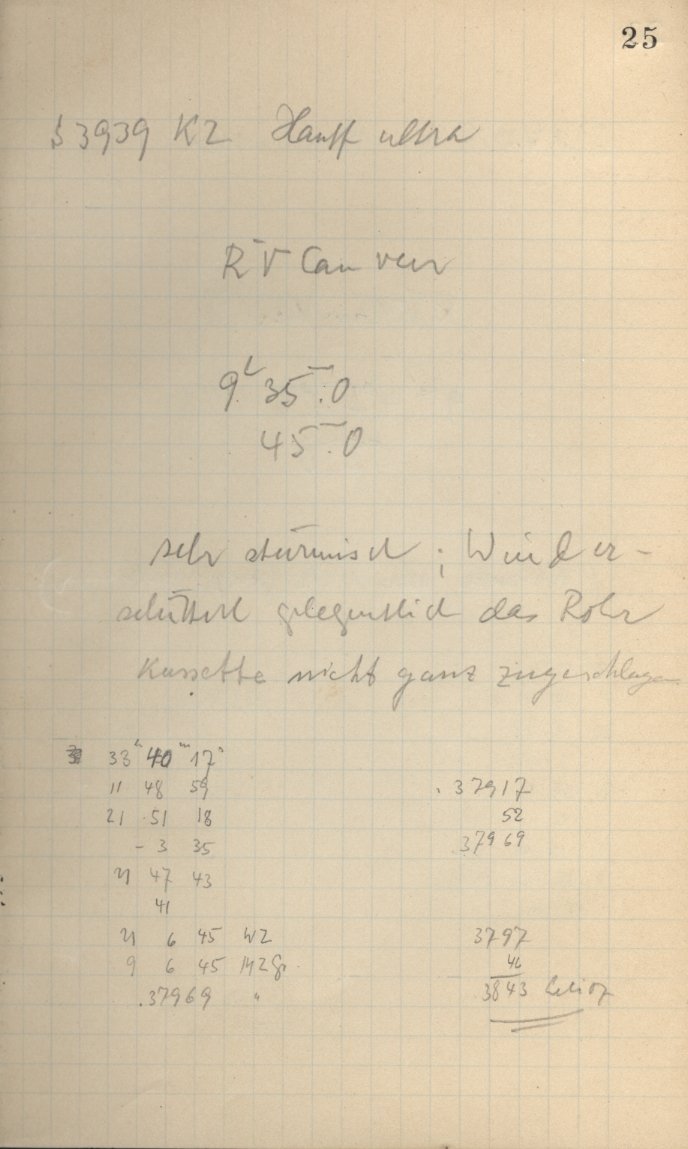 25
S 3939 KZ Hauff ultra
RV Can ven
9h 35.0
45.0
sehr stürmisch; Wind er-
schüttert gelegentlich das Rohr
Kassette nicht ganz zugeschlagen
33h 40m 17s
11 48 59
21 51 18
- 3 35
21 47 43
41
21 6 45 WZ
9 6 45 MZGr.
.37969 "
.37917
52
37969
3797
46
3843